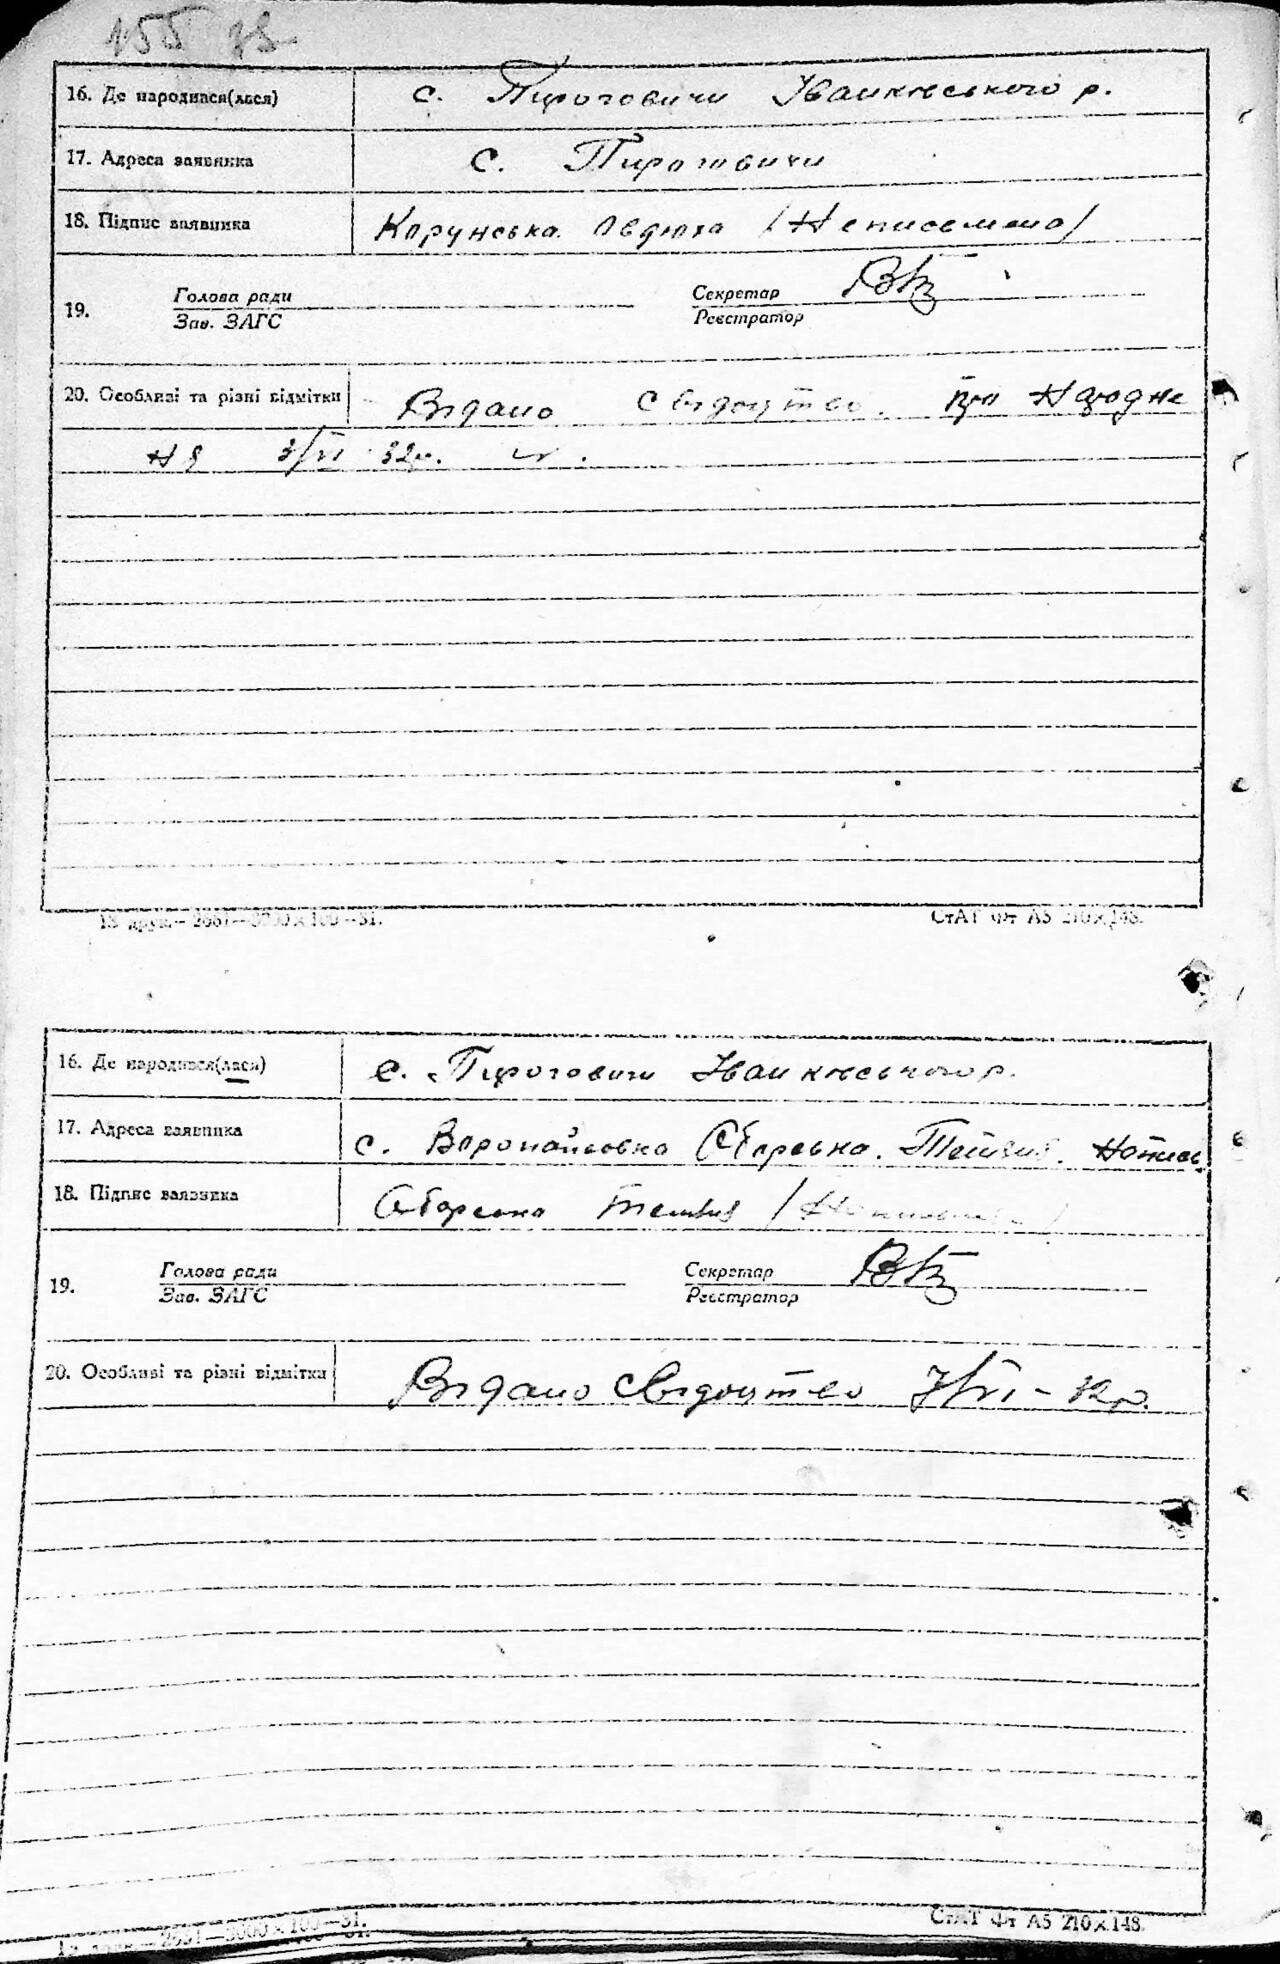 155 78
16. Де народився(лася) с. Пироговичи Іванківського р.
17. Адреса заявника с. Пироговичи
18. Підпис заявника Корунська Овдюха /Неписемена/
19. Голова ради Секретар
Зав. ЗАГС Реєстратор
20. Особливі та різні відмітки Видано свідоцтво про Народне
ня 3/VI 32р.
13 друк.— 2661—3000×100—31. СтАТ Фт А5 210×148.
16. Де народився(лася) с. Пироговичи Іванківського р.
17. Адреса заявника с. Воропаївовка Сборська
18. Підпис заявника Сборська
19. Голова ради Секретар
Зав. ЗАГС Реєстратор
20. Особливі та різні відмітки Видано свідоцтво 7/VI – 32р.
2661—3000×100—31. СтАТ Фт А5 210×148.